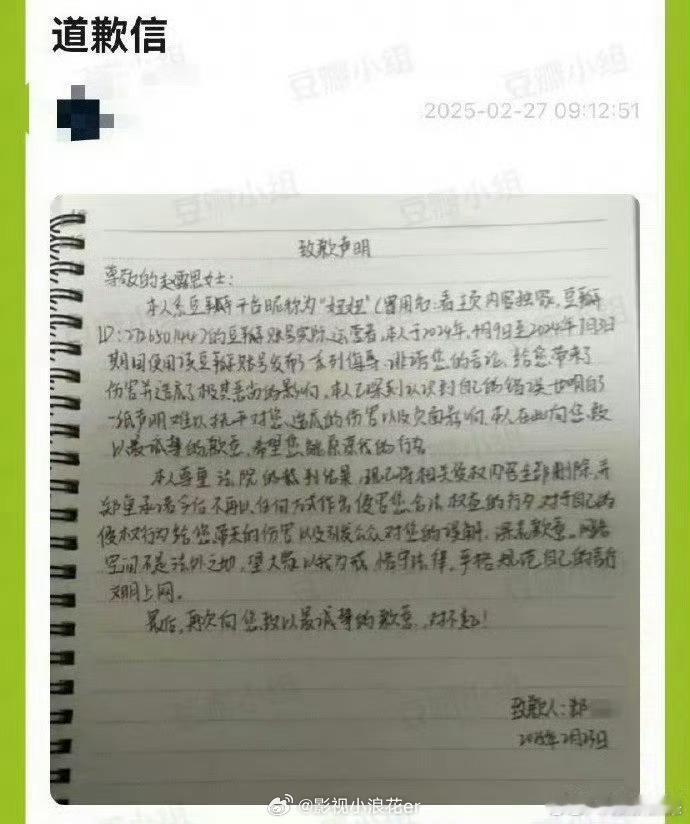 道歉信
2025-02-27 09:12:51
豆瓣小组
豆瓣小组
豆瓣小组
豆瓣小组
致歉声明
尊敬的赵露思女士:
本人系豆瓣平台昵称为"妞妞"(曾用名:看主页内容独家,豆瓣
ID:的豆瓣账号实际运营者,本人于2024年4月9日至2024年7月3日
期间使用该豆瓣账号发布了系列侮辱、诽谤您的言论,给您带来了
伤害并造成了极其恶劣的影响,本人已深刻认识到自己的错误,也明白
一纸声明难以抚平对您造成的伤害以及负面影响,本人在此向您致
以最诚挚的歉意,希望您能原谅我的行为。
本人尊重法院的裁判结果,现已将相关侵权内容全部删除,并
郑重承诺今后不再以任何方式作出侵害您合法权益的行为,对于自己的
侵权行为给您带来的伤害以及引发公众对您的误解,深表歉意。网络
空间不是法外之地,望大家以我为戒,恪守法律,严格规范自己的言行
文明上网。
最后,再次向您致以最诚挚的歉意,对不起!
致歉人:郑
2025年2月25日
@影视小浪花er